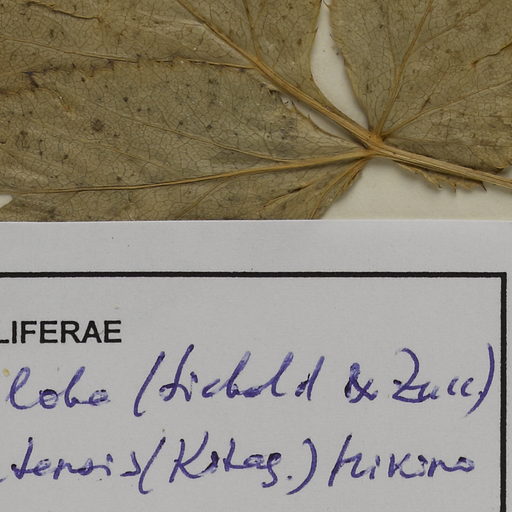 LIFERAE
loba (Siebold & Zucc)
tensis (Kitag.) Hikino